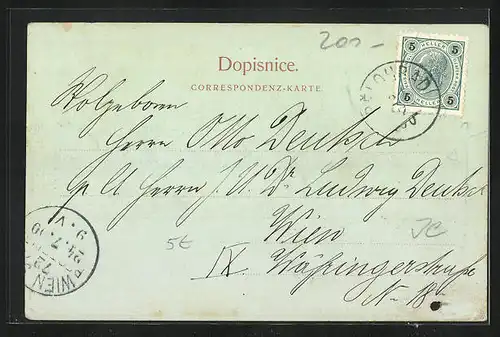 200-
Dopisnice.
CORRESPONDENZ-KARTE
5 HELLER 5
5 HELLER 5
Herrn Otto Deutsch
Herrn J. U. Dr Ludwig Deutsch
Wien
IX Währingerstraße
No 18
5€
WIEN
72
24. 7. 00
9. V.